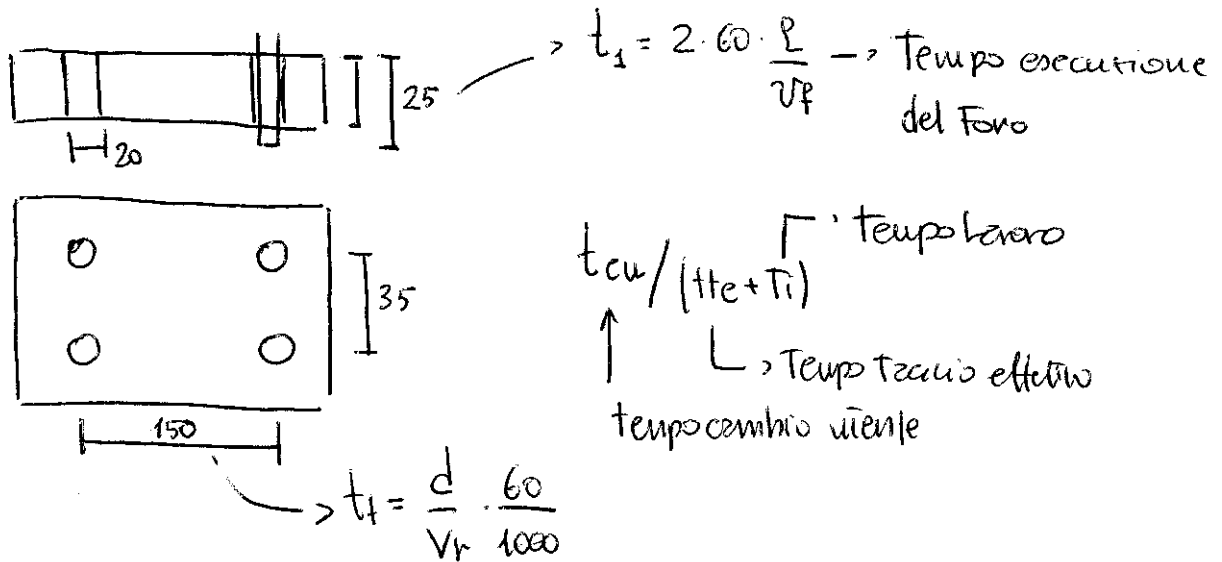 25
20
→ t₁ = 2·60· ℓ/vf → Tempo esecuzione
del Foro
35
150
tcu/(tte+Ti)
→ tempo lavoro
→ Tempo traccio effettivo
tempo cambio utensile
→ tt = d/Vr · 60/1000